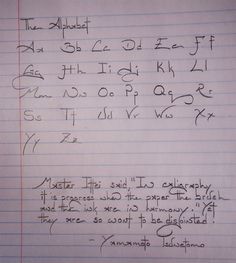 The Alphabet
Aa Bb Cc Dd Ee Ff
Gg Hh Ii Jj Kk Ll
Mm Nn Oo Pp Qq Rr
Ss Tt Uu Vv Ww Xx
Yy Zz
Master Ittei said, "In caligraphy
it is progress when the paper the brush
and the ink are in harmony." Yet
they are so wont to be disjointed.
- Yamamoto Tsunetomo